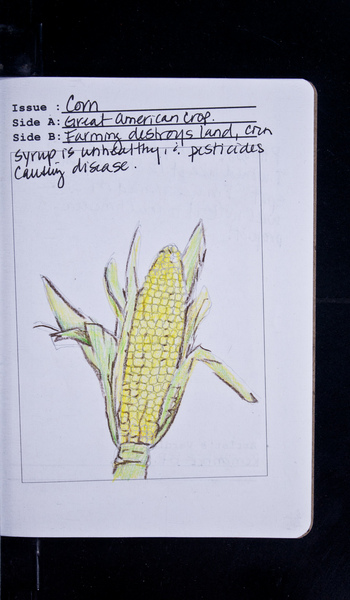 Issue : Corn
Side A: Great American Crop.
Side B: Farming destroys land, corn
syrup is unhealthy, & pesticides
causing disease.